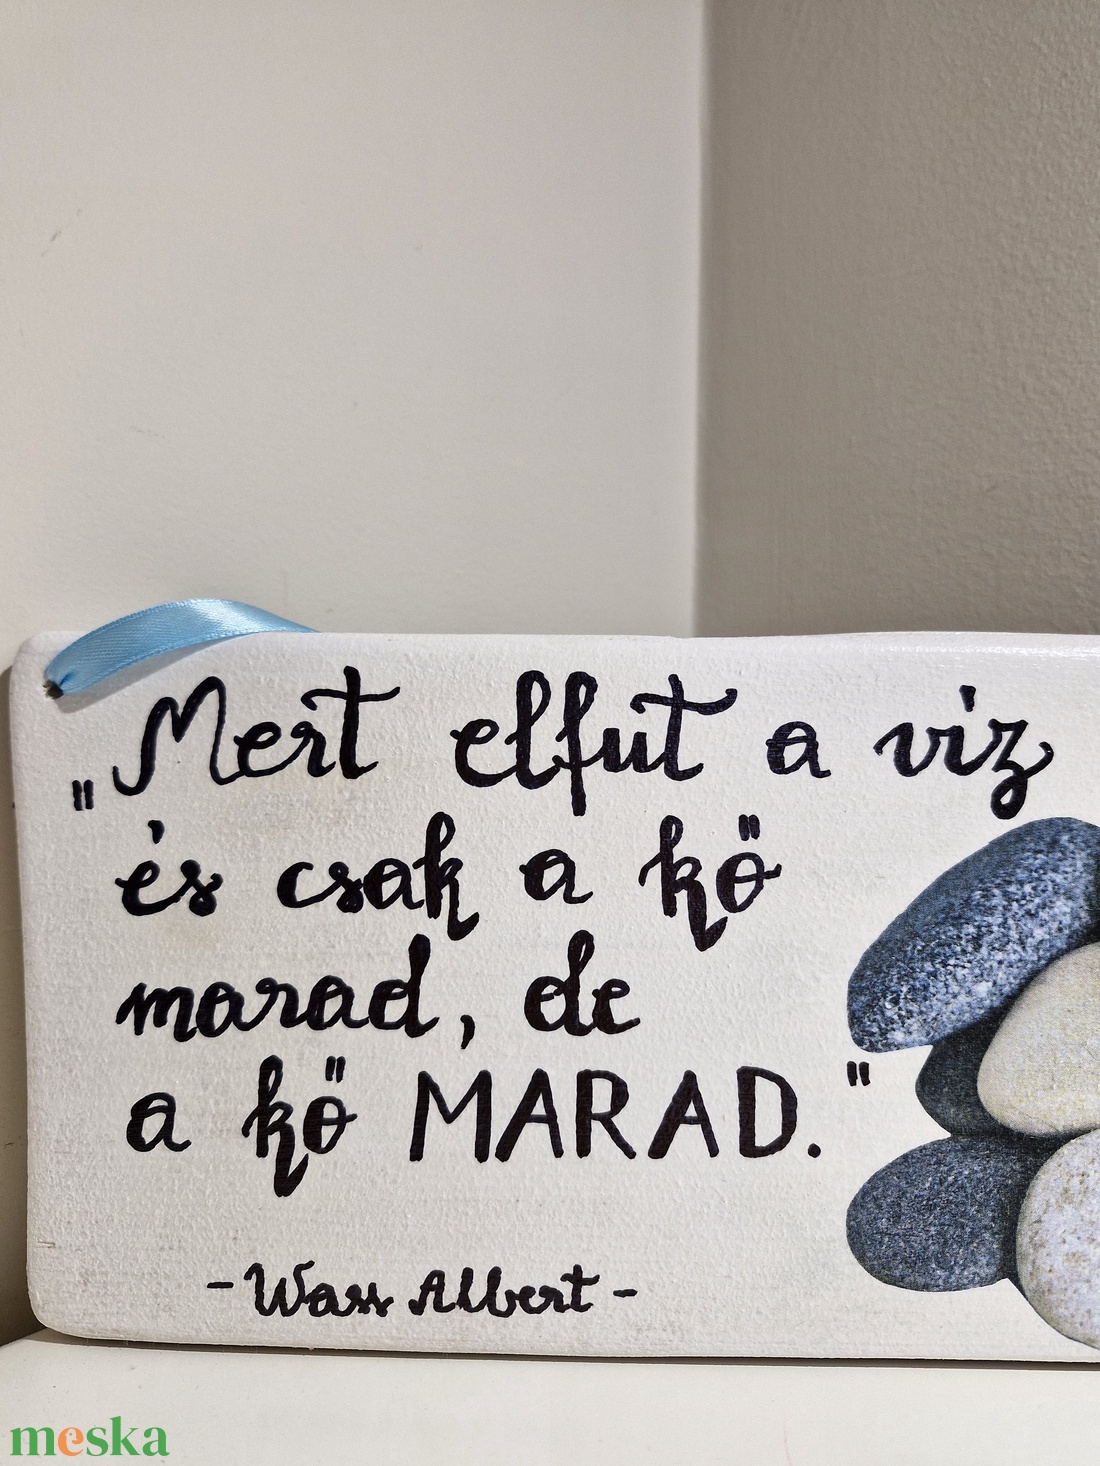 "Mert elfut a víz
és csak a kő
marad, de
a kő MARAD."
- Wass Albert -
meska